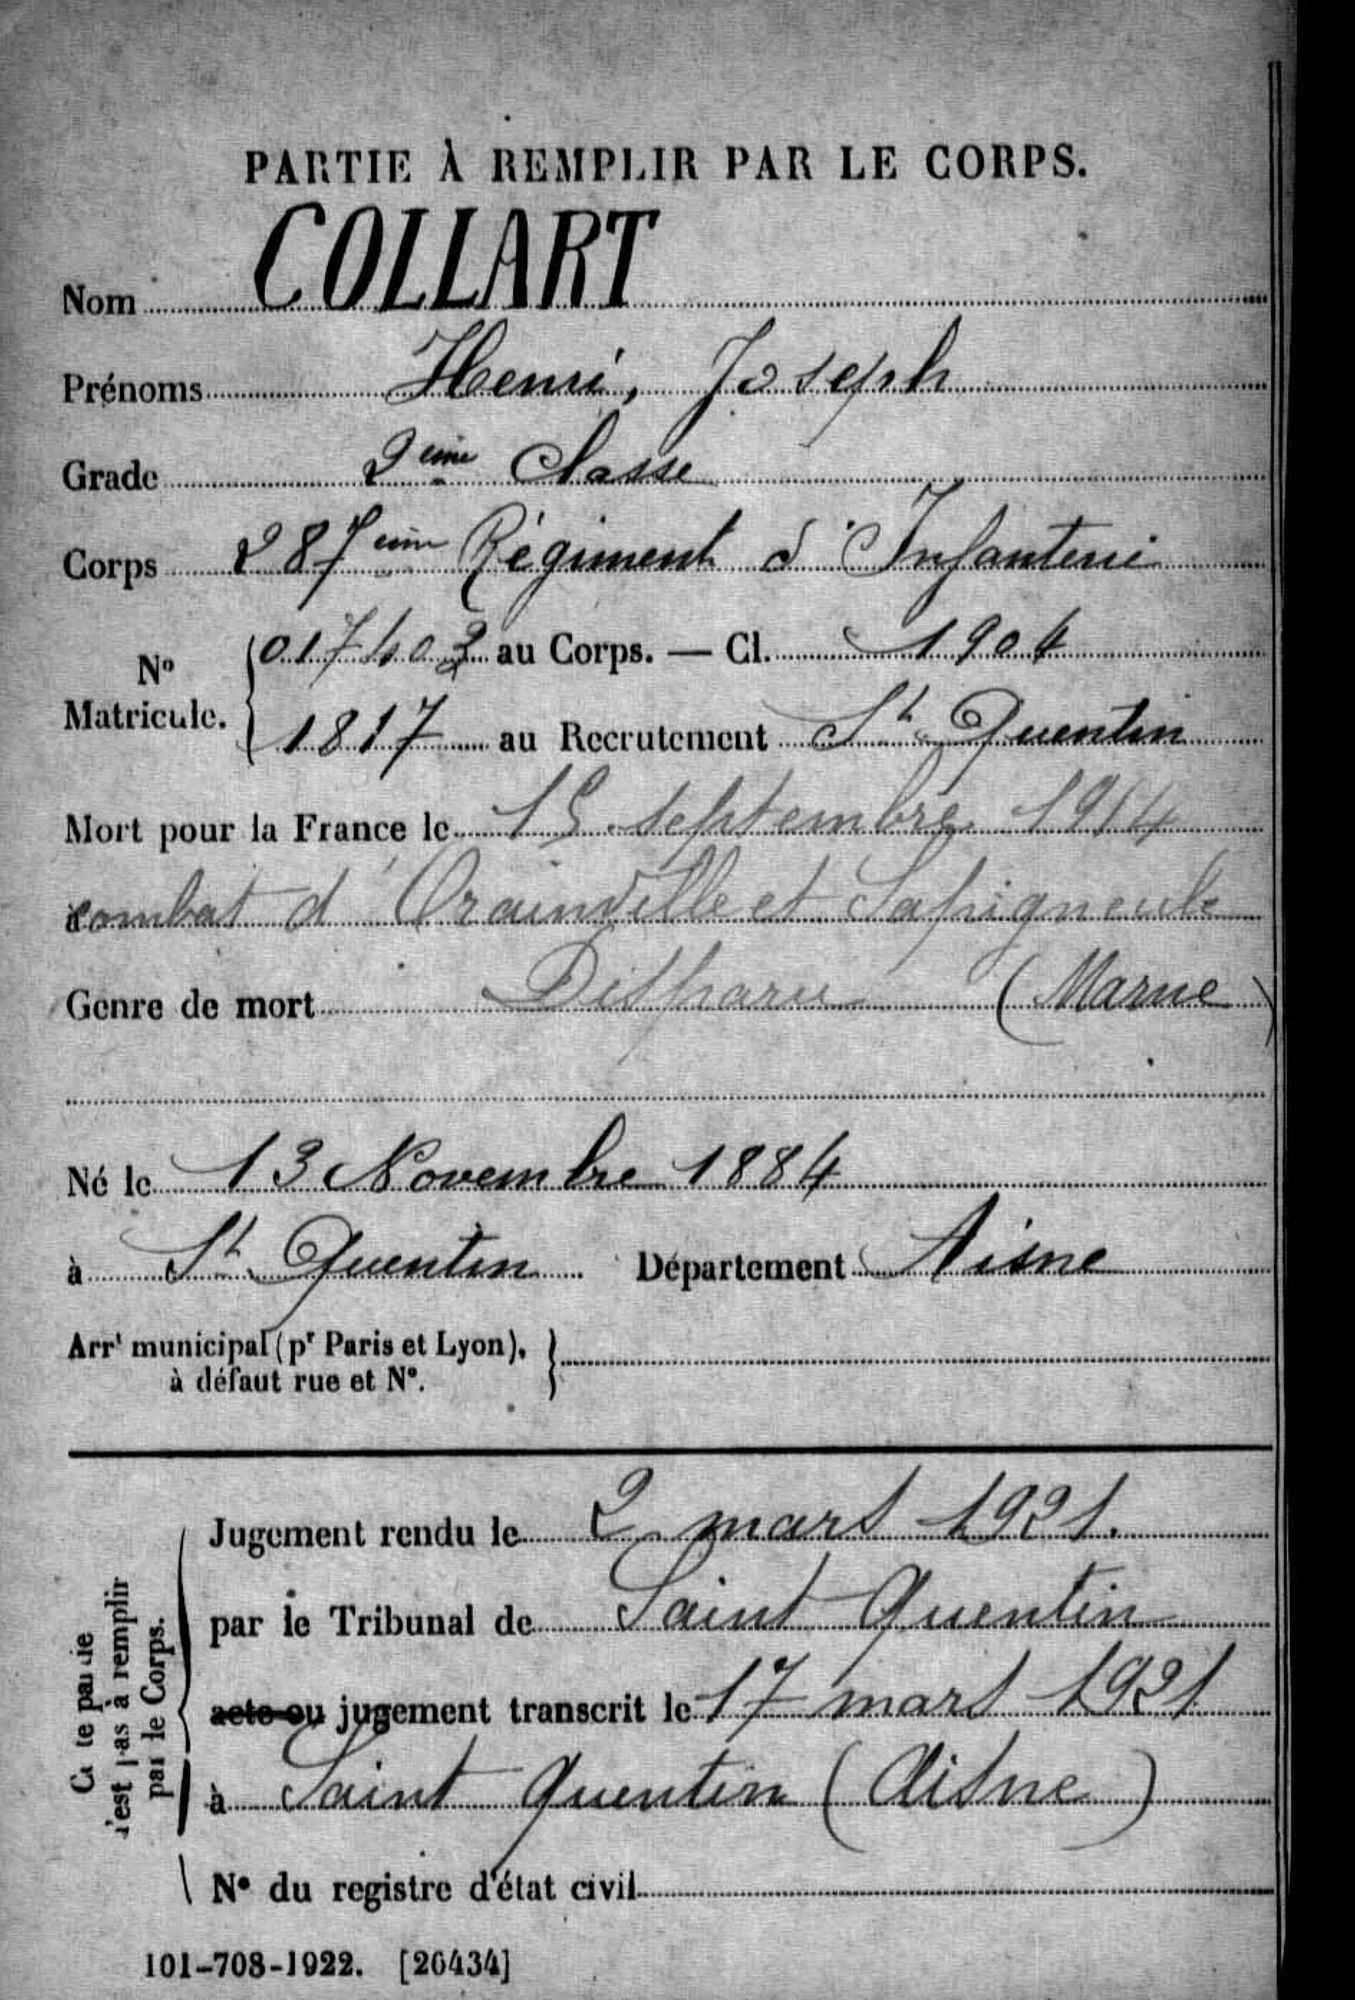 PARTIE À REMPLIR PAR LE CORPS.
Nom COLLART
Prénoms Henri, Joseph
Grade 2eme Classe
Corps 287eme Régiment d'Infanterie
Nº Matricule. 017402 au Corps. — Cl. 1904
1817 au Recrutement St Quentin
Mort pour la France le 15 septembre 1914
combat d'Orainville et Sapigneule
Genre de mort Disparu (Marne)
Né le 13 Novembre 1884
à St Quentin Département Aisne
Arrt municipal (pr Paris et Lyon),
à défaut rue et Nº.
Jugement rendu le 2 mars 1921.
par le Tribunal de Saint Quentin
acte ou jugement transcrit le 17 mars 1921
à Saint Quentin (Aisne)
Nº du registre d'état civil
Cette partie
n'est pas à remplir
par le Corps.
101-708-1922. [26434]